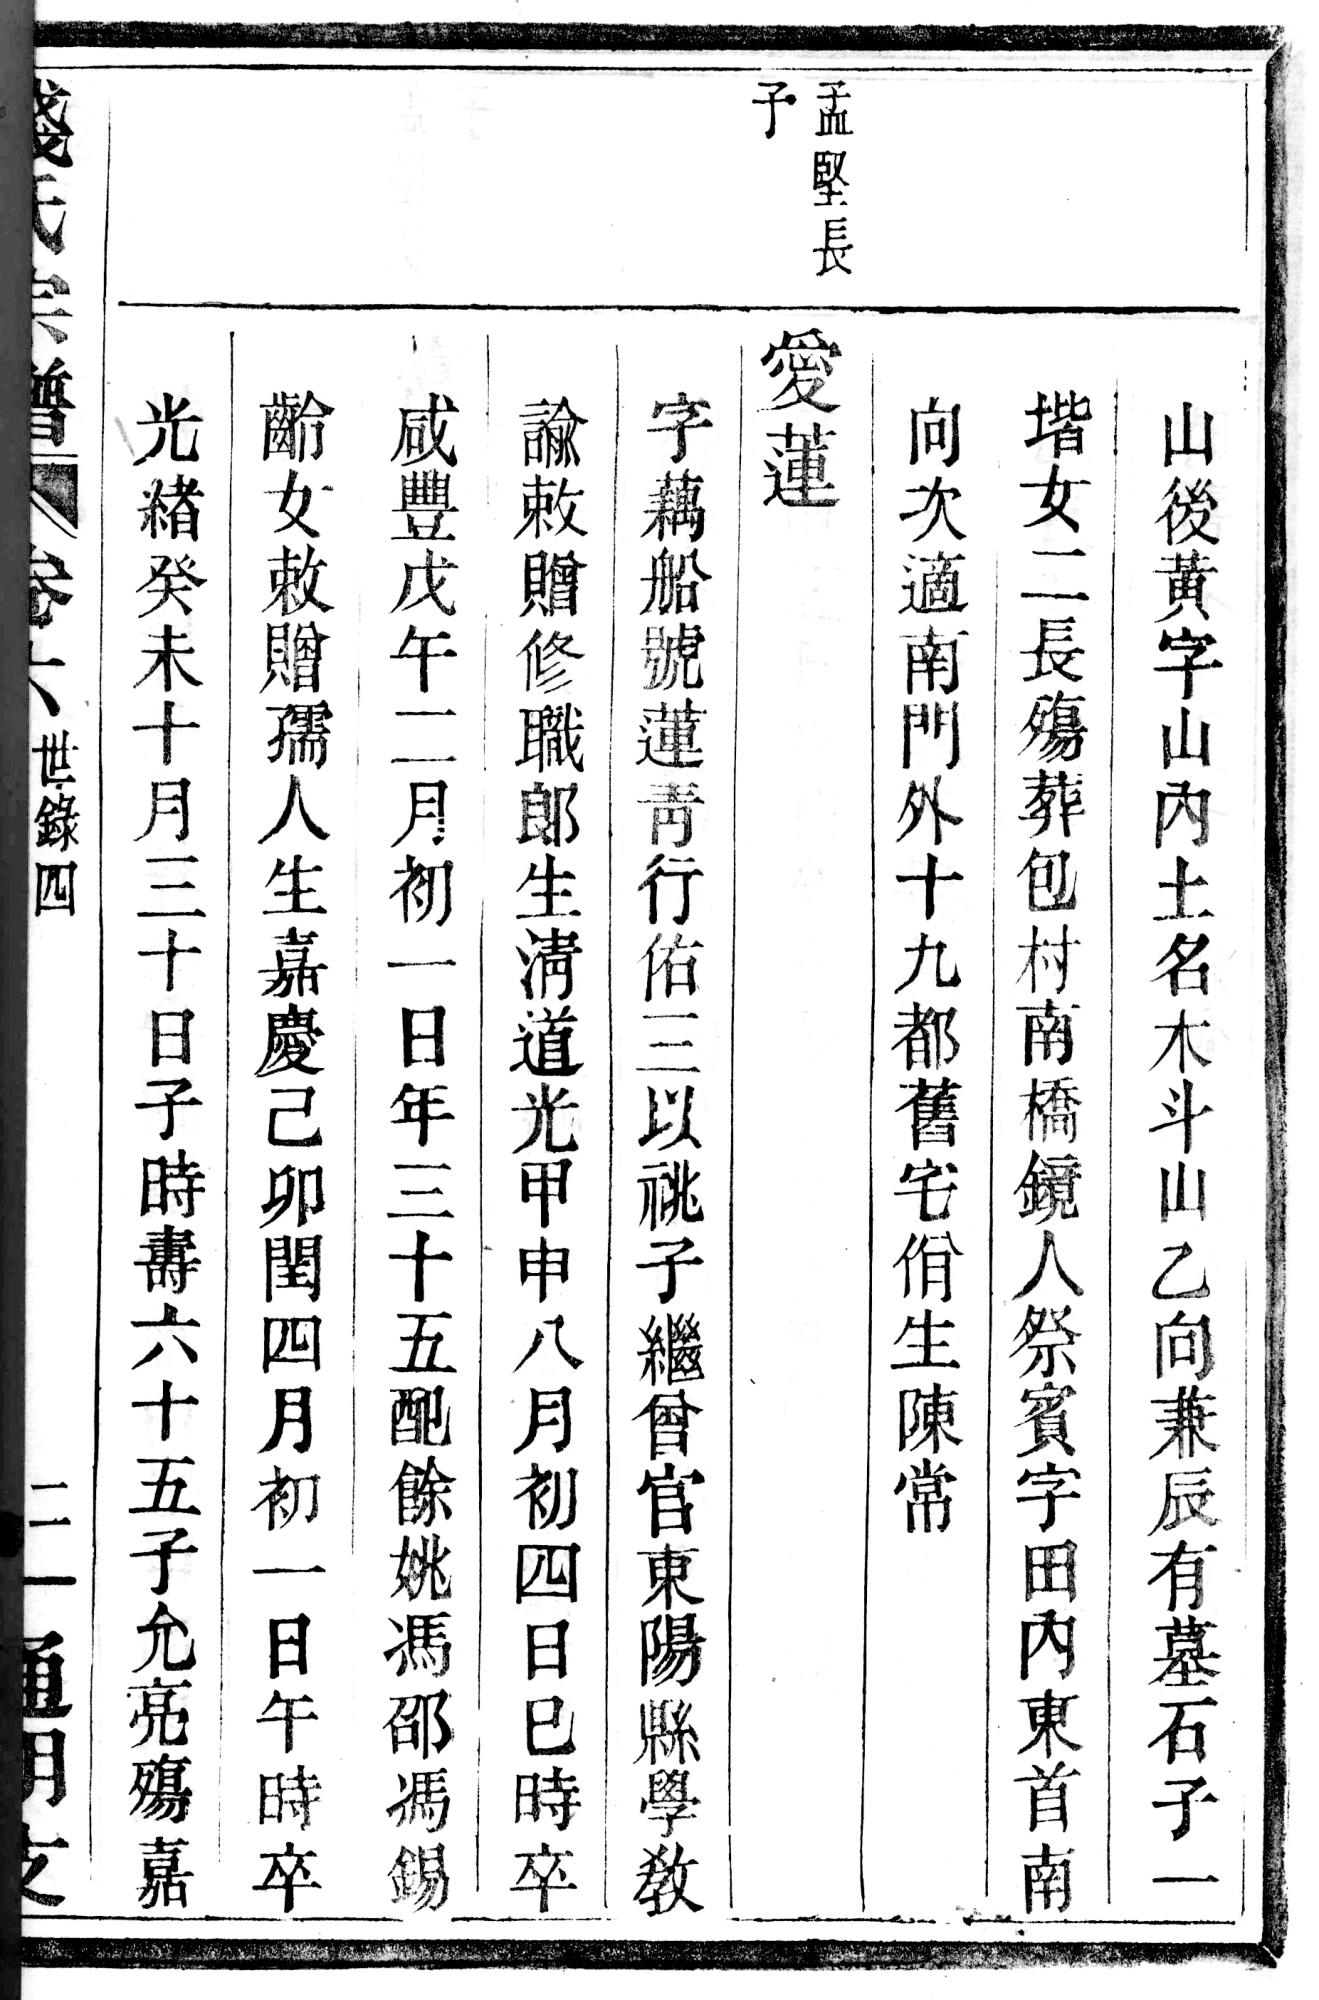 山後黃字山山內土名木斗山乙向兼辰有墓石子一
堦女二長殤葬包村南橋鏡人祭賓字田內東首南
向次適南門外十九都舊宅佾生陳常
孟堅長
子
愛蓮
字藕船號蓮青行佑三以祧子繼曾官東陽縣學教
諭敕贈修職郎生清道光甲申八月初四日巳時卒
咸豐戊午二月初一日年三十五配餘姚馮邵馮錫
齡女敕贈孺人生嘉慶己卯閏四月初一日午時卒
光緒癸未十月三十日子時壽六十五子允亮殤嘉
錢氏宗譜 卷六 世錄四 二一 通明支